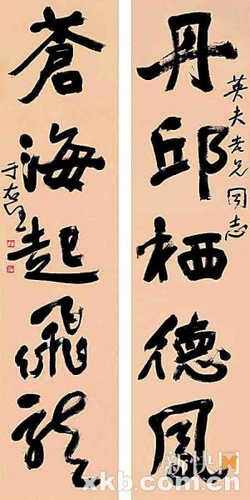 英夫老兄同志
丹邱栖德鳳
蒼海起飛龍
于右任
新快网
xkb.com.cn